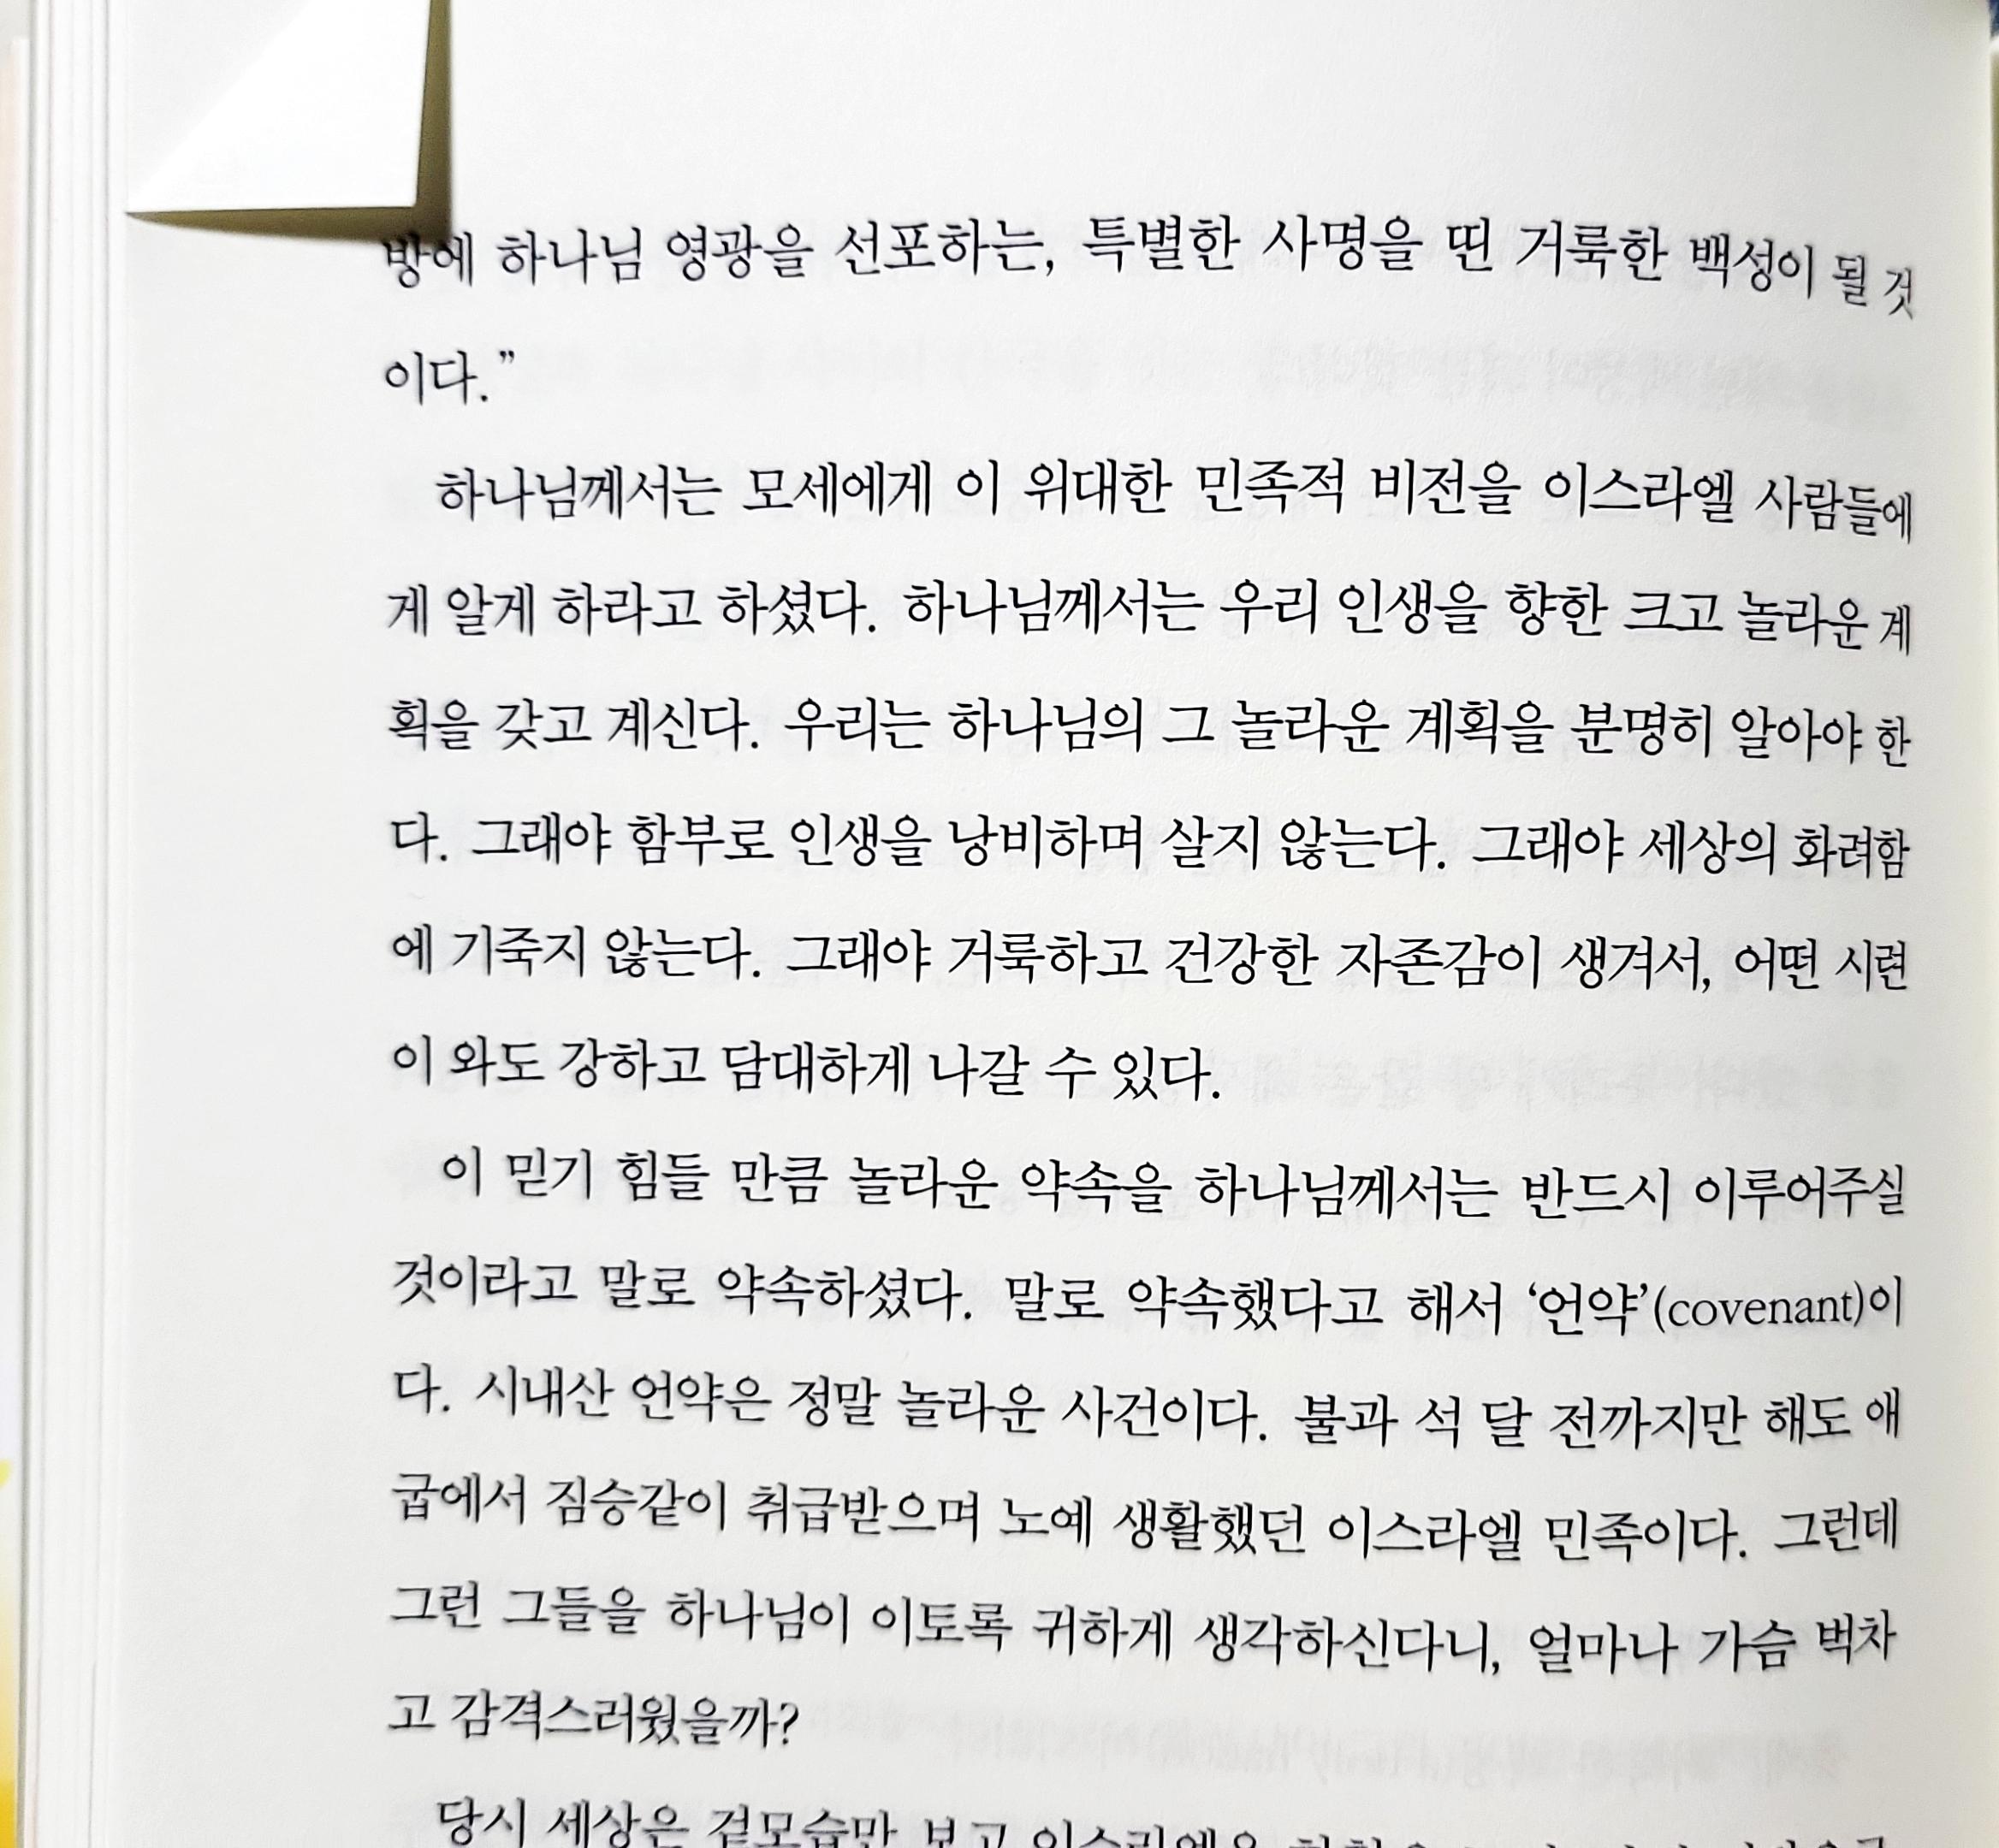 방에 하나님 영광을 선포하는, 특별한 사명을 띤 거룩한 백성이 될 것
이다.”
하나님께서는 모세에게 이 위대한 민족적 비전을 이스라엘 사람들에
게 알게 하라고 하셨다. 하나님께서는 우리 인생을 향한 크고 놀라운 계
획을 갖고 계신다. 우리는 하나님의 그 놀라운 계획을 분명히 알아야 한
다. 그래야 함부로 인생을 낭비하며 살지 않는다. 그래야 세상의 화려함
에 기죽지 않는다. 그래야 거룩하고 건강한 자존감이 생겨서, 어떤 시련
이 와도 강하고 담대하게 나갈 수 있다.
이 믿기 힘들 만큼 놀라운 약속을 하나님께서는 반드시 이루어주실
것이라고 말로 약속하셨다. 말로 약속했다고 해서 ‘언약’(covenant)이
다. 시내산 언약은 정말 놀라운 사건이다. 불과 석 달 전까지만 해도 애
굽에서 짐승같이 취급받으며 노예 생활했던 이스라엘 민족이다. 그런데
그런 그들을 하나님이 이토록 귀하게 생각하신다니, 얼마나 가슴 벅차
고 감격스러웠을까?
당시 세상은 겉모습만 보고